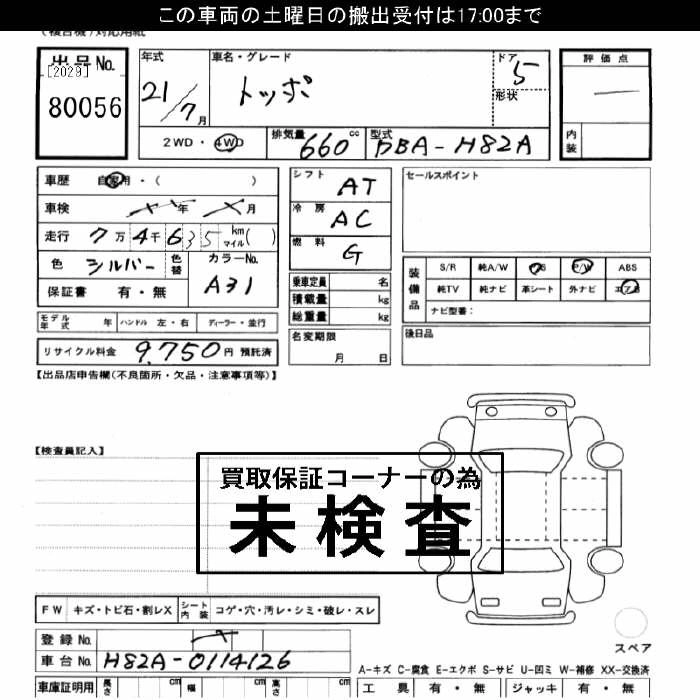 この車両の土曜日の搬出受付は17:00まで
(複合機)対応用紙
出品No.
[2029]
80056
年式
21/7月
車名・グレード
トッポ
ドア
5
形状
評価点
内装
2WD・4WD
排気量 660cc
型式 DBA-H82A
車歴 自家用・( )
車検 年 月
走行 7万4千635 km マイル( )
色 シルバー 色替
カラーNo. A31
保証書 有・無
シフト AT
冷房 AC
燃料 G
乗車定員 名
積載量 kg
総重量 kg
セールスポイント
装備品
S/R 純A/W P/S P/W ABS
純TV 純ナビ 革シート 外ナビ エアB
ナビ型番:
モデル年式 年 ハンドル 左・右 ディーラー・並行
名変期限
月 日
後日品
リサイクル料金 9,750円 預託済
【出品店申告欄(不良箇所・欠品・注意事項等)】
【検査員記入】
買取保証コーナーの為
未検査
FW キズ・トビ石・割レX シート内装 コゲ・穴・汚レ・シミ・破レ・スレ
スペア
登録No.
車台No. H82A-0114126
A-キズ C-腐食 E-エクボ S-サビ U-凹ミ W-補修 XX-交換済
車庫証明用 長さ cm 幅 cm 高さ cm
工具 有・無 ジャッキ 有・無